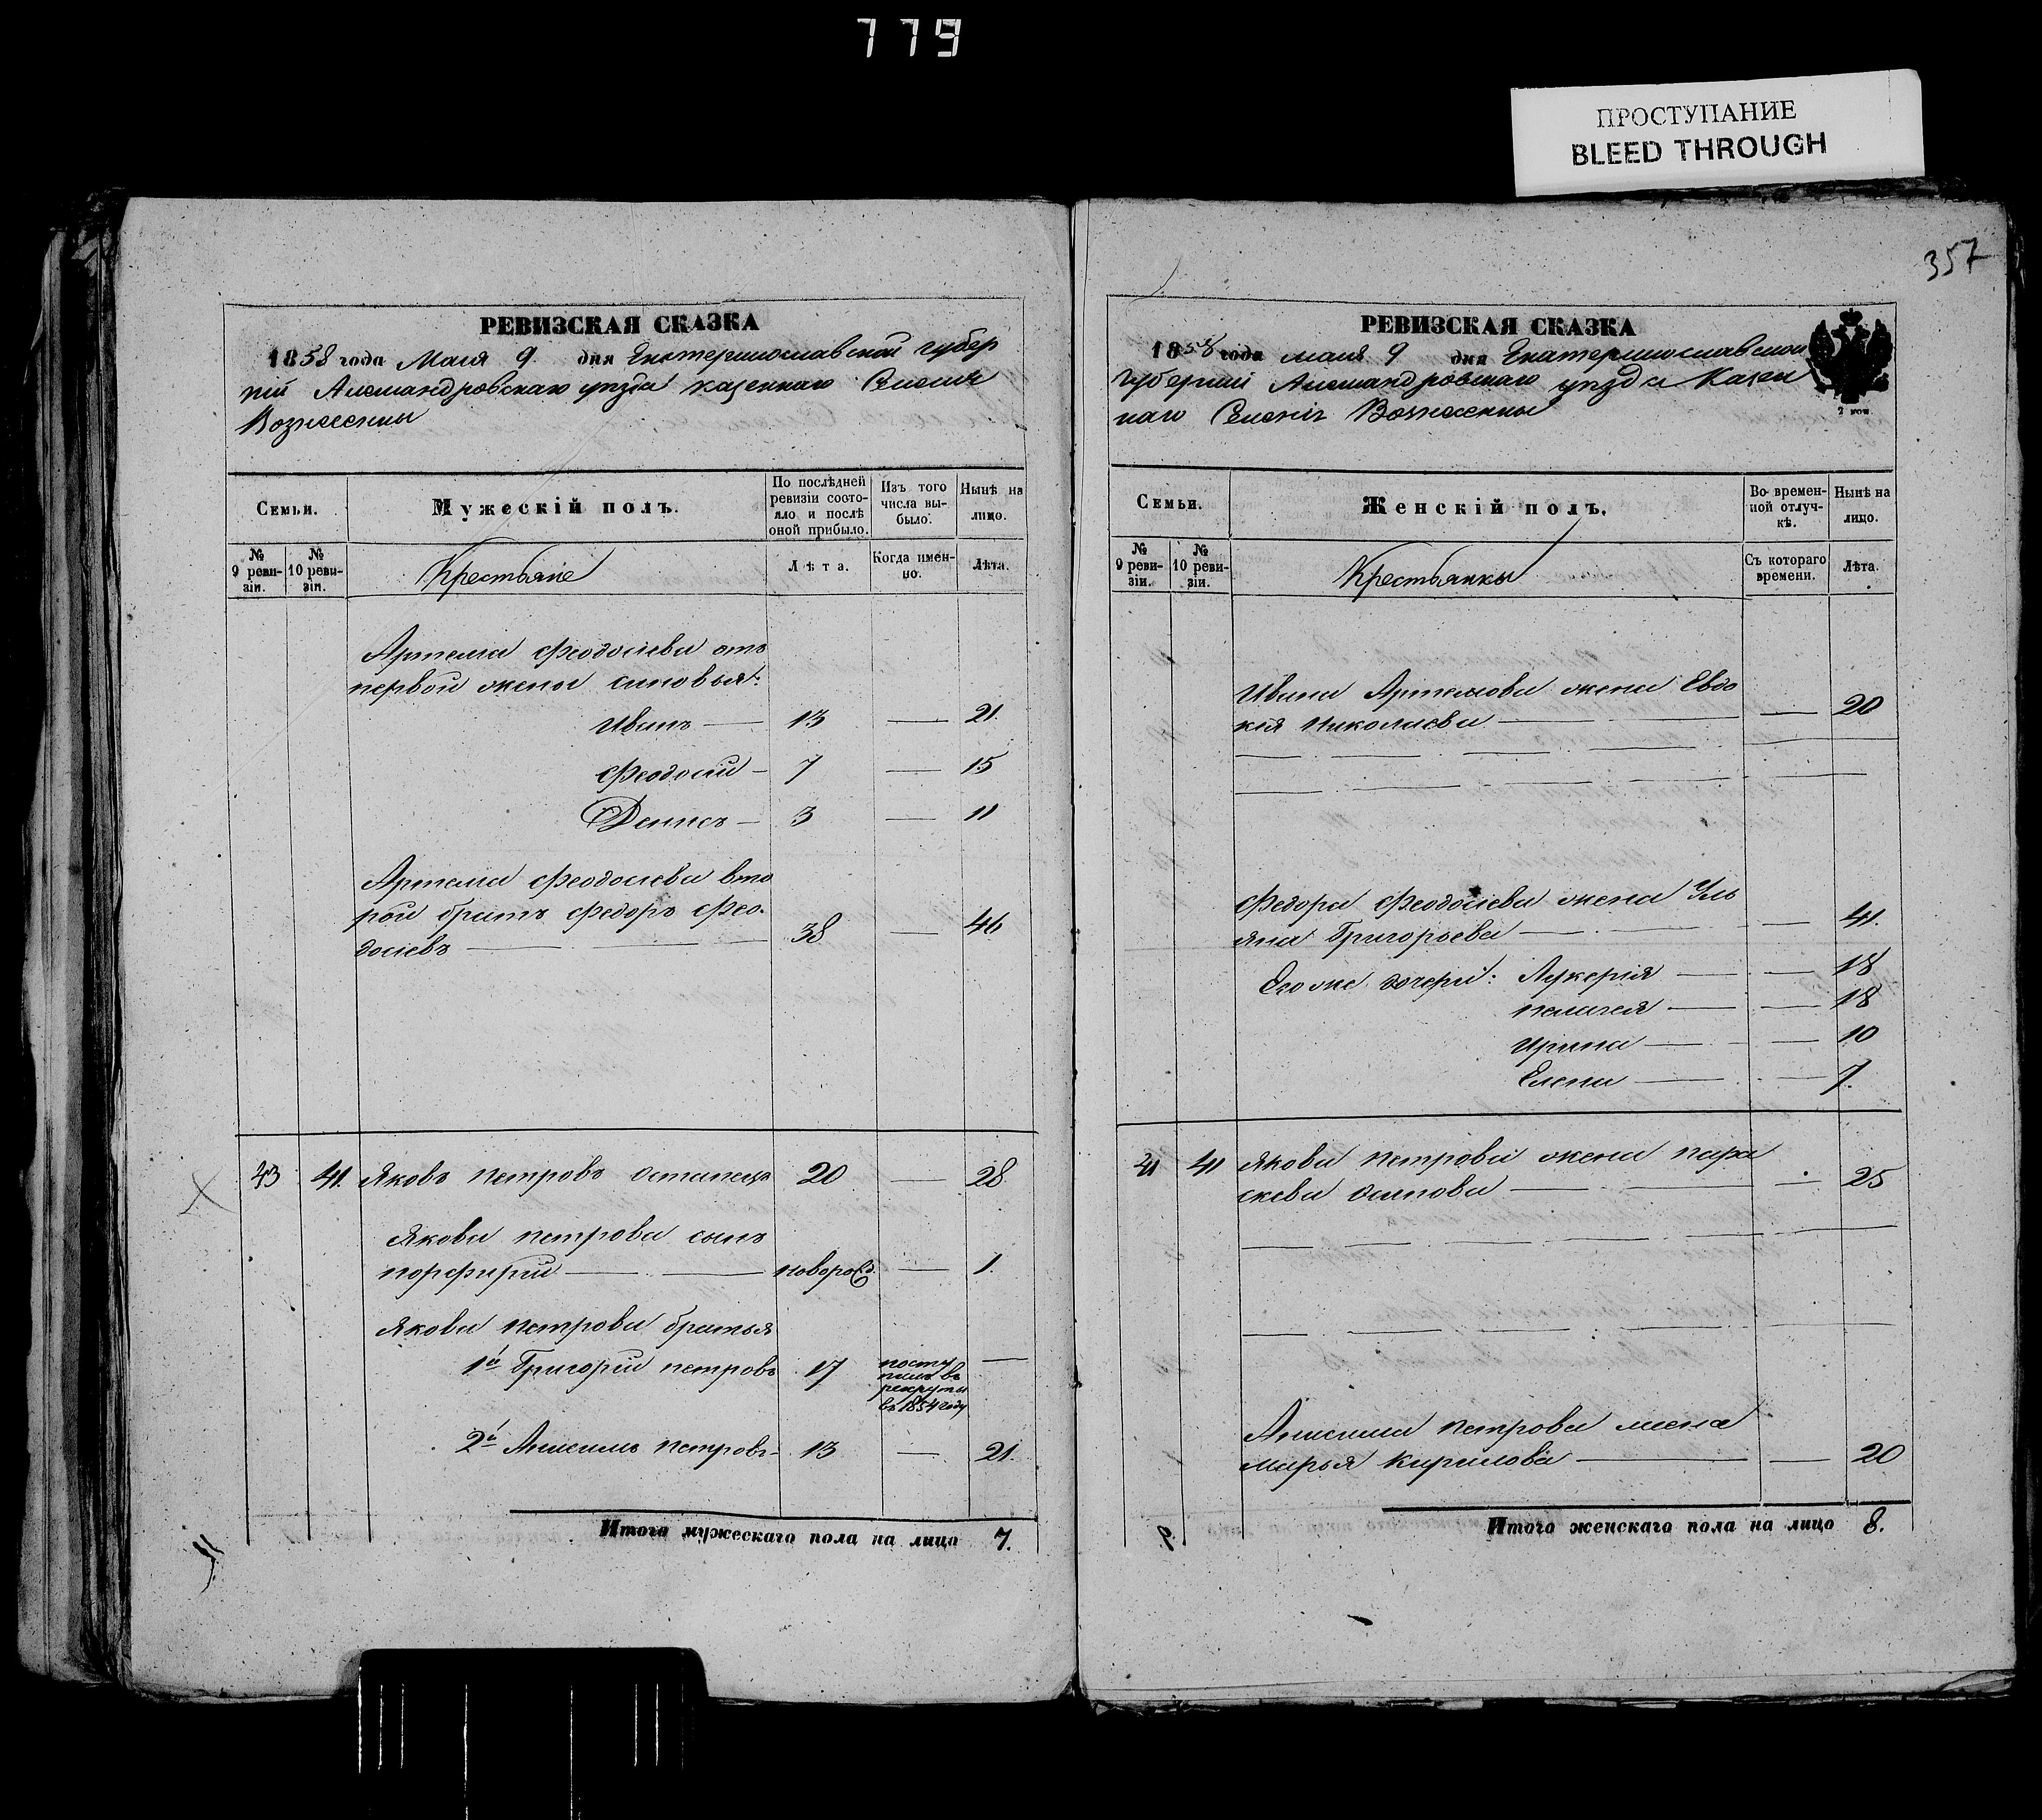 779
ПРОСТУПАНИЕ
BLEED THROUGH
357
РЕВИЗСКАЯ СКАЗКА
1858 года Мая 9 дня Екатеринославской губер
ніи Александровскаго уѣзда казеннаго Селенія
Вознесенки
Семьи.
Мужескій полъ.
По послѣдней ревизіи состояло и послѣ оной прибыло.
Изъ того числа выбыло.
Нынѣ на лицо.
№ 9 ревизіи.
№ 10 ревизіи.
Крестьяне
Лѣта.
Когда именно.
Лѣта.
Артема Феодосіева отъ
первой жены синовья:
Иванъ — 13 — 21.
Феодосій — 7 — 15
Денисъ — 3 — 11
Артема Феодосіева вто
рой братъ Федоръ Фео-
досіевъ — 38 — 46
43 41. Яковъ Петровъ Остапецъ 20 — 28
Якова Петрова сынъ
Порфирій — новорожд. — 1.
Якова Петрова братья
1й Григорій Петровъ 17 посту
пилъ въ
рекруты
въ 1854 году —
2й Анисимъ Петровъ — 13 — 21.
Итого мужескаго пола на лицо 7.
РЕВИЗСКАЯ СКАЗКА
1858 года мая 9 дня Екатеринославской
Губерніи Александровскаго уѣзда Казен
наго Селенія Вознесенки
2 коп
Семьи.
Женскій полъ.
Во временной отлучкѣ.
Нынѣ на лицо.
№ 9 ревизіи.
№ 10 ревизіи.
Крестьянки
Съ котораго времени.
Лѣта.
Ивана Артемова жена Евдо
кія Николаева — 20
Федора Феодосіева жена Уль
яна Григорьева — 41.
Его же дочери: Лукерія — 18
Пелагея — 18
Ирина — 10
Елена — 7.
41 41 Якова Петрова жена Пара
скева Осипова — 25
Анисима Петрова жена
Марья Кирилова — 20
Итого женскаго пола на лицо 8.